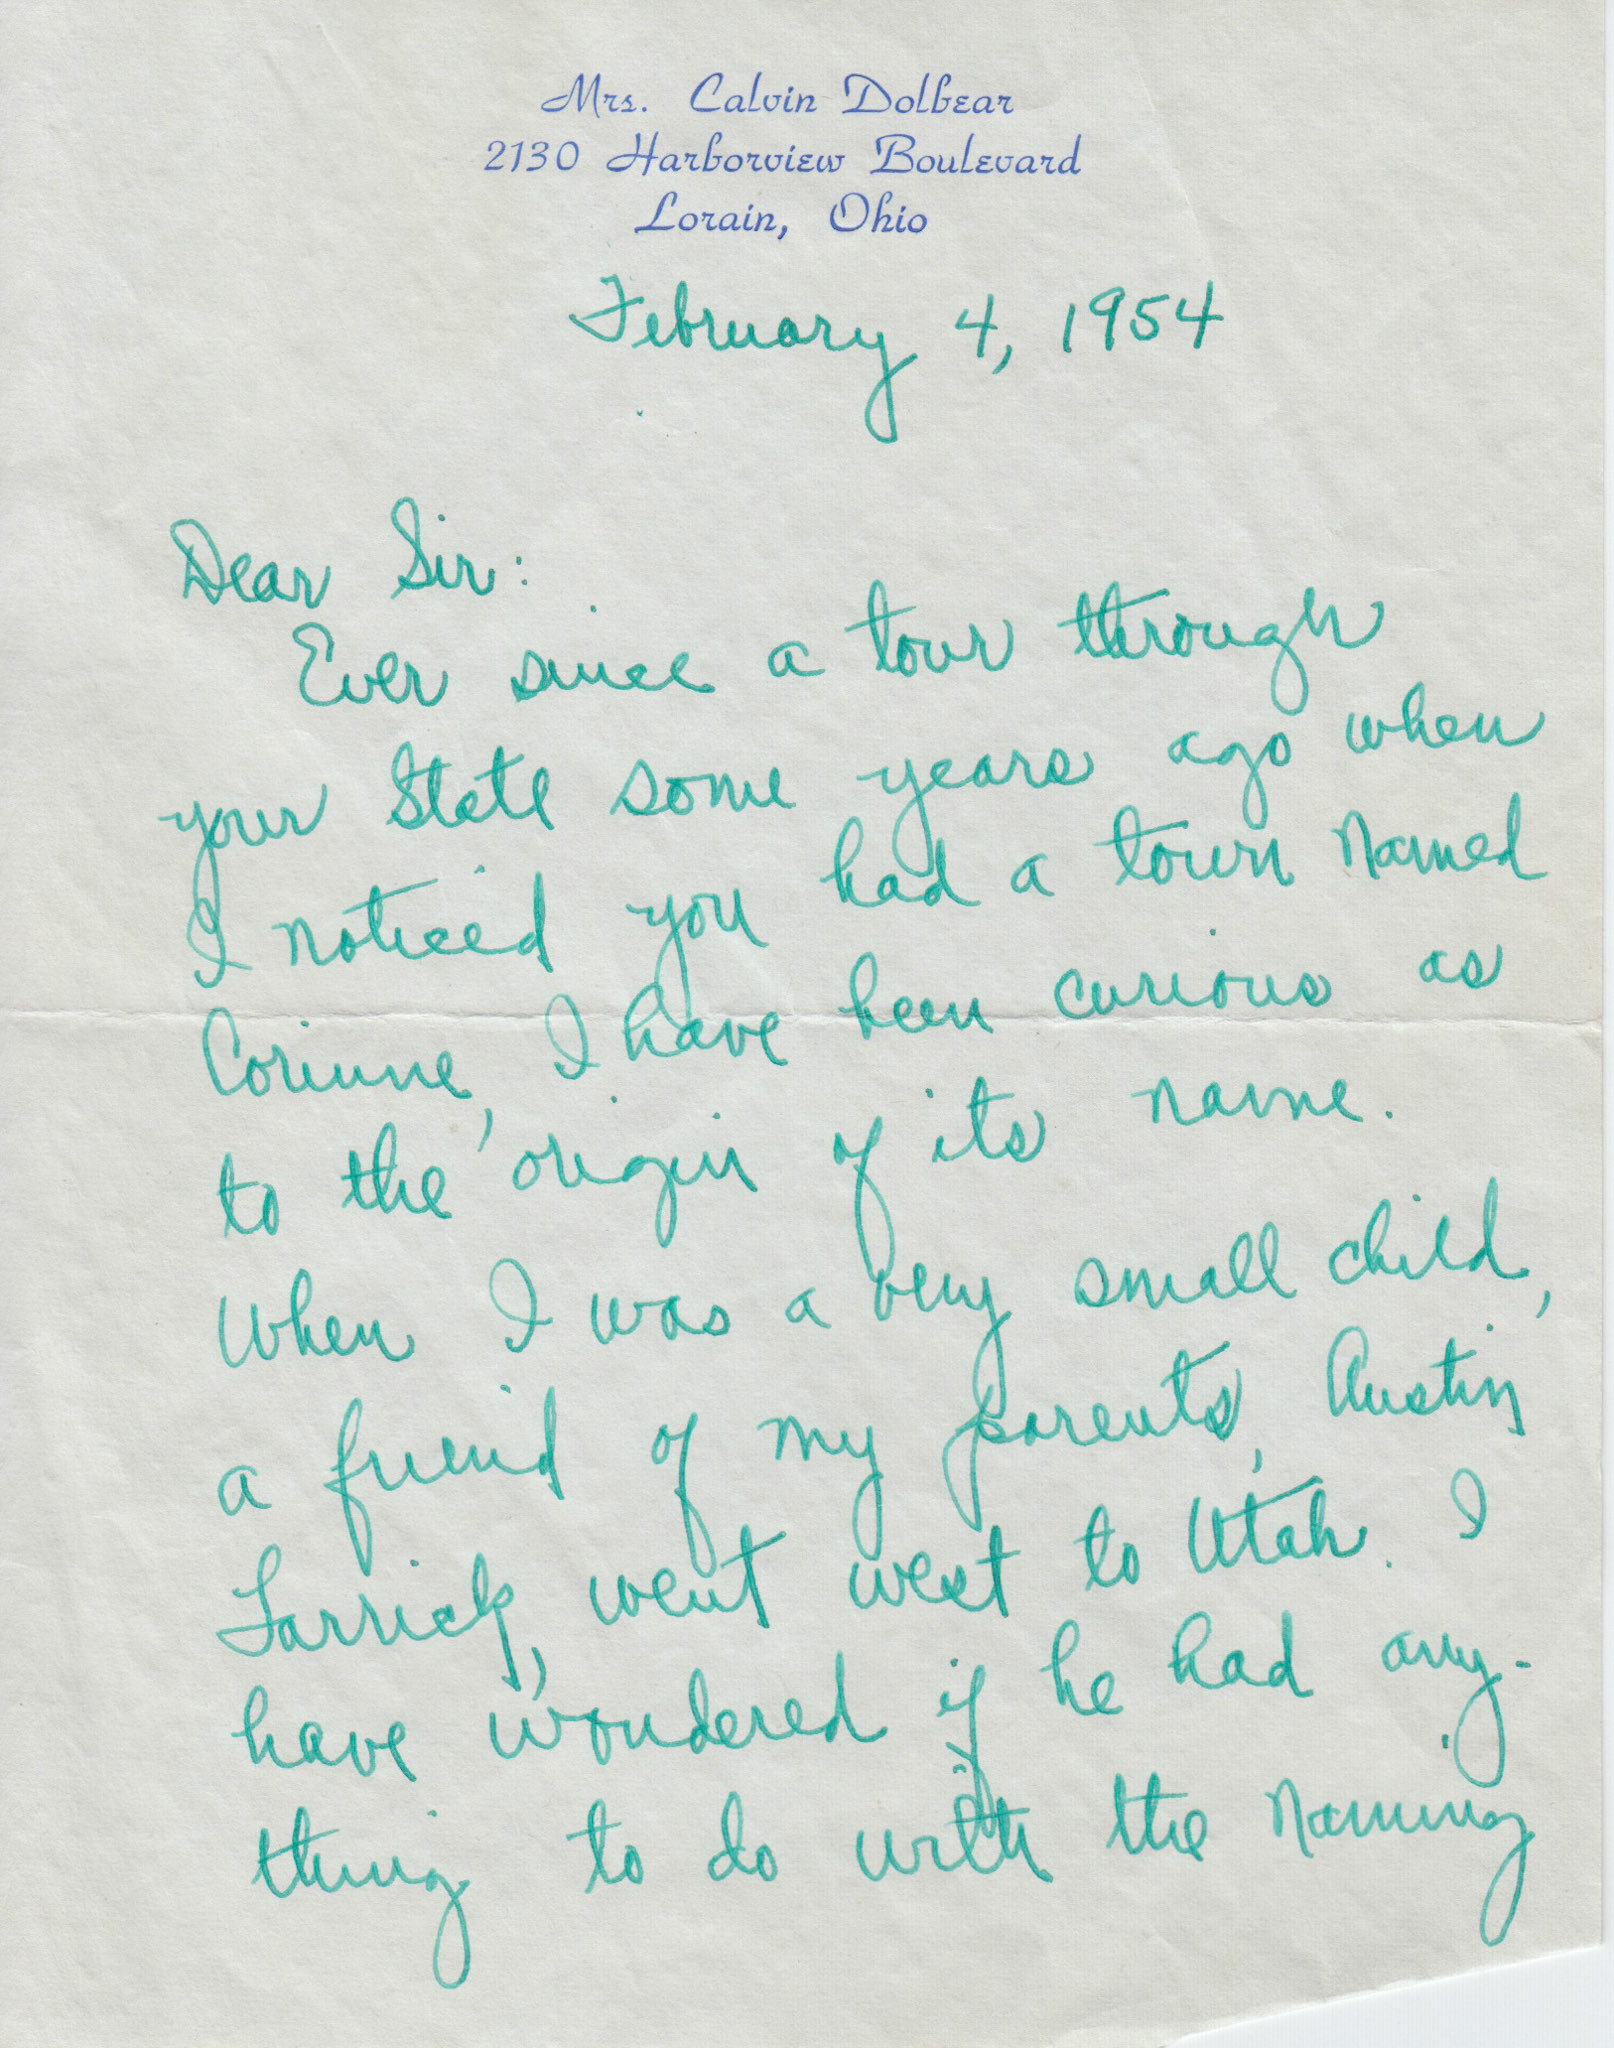 Mrs. Calvin Dolbear
2130 Harborview Boulevard
Lorain, Ohio
February 4, 1954
Dear Sir:
Ever since a tour through
your State some years ago when
I noticed you had a town named
Corinne, I have been curious as
to the origin of its name.
When I was a very small child,
a friend of my parents, Austin
Larrick, went west to Utah. I
have wondered if he had any-
thing to do with the naming